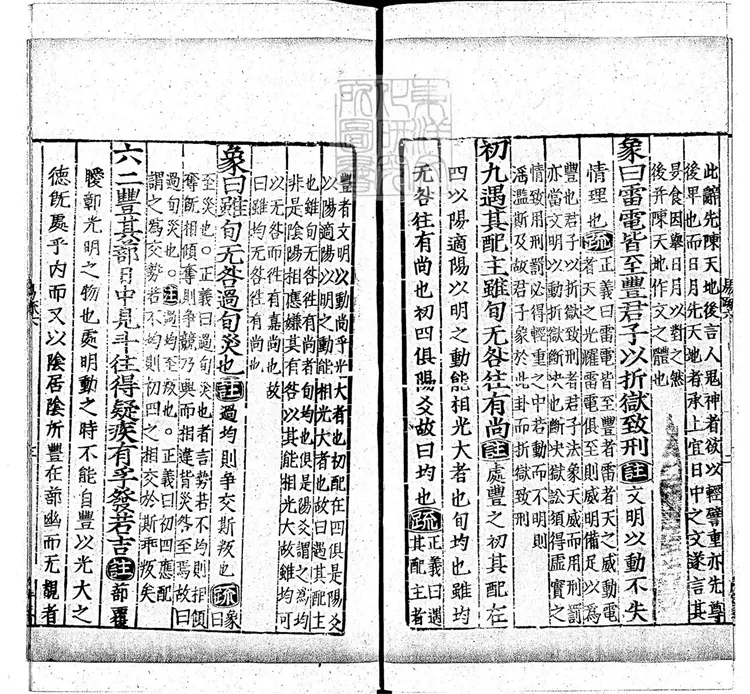 此辭先陳天地後言人鬼神者欲以輕譬重亦先尊
後卑也而日月先天地者承上宜日中之文遂言其
昃食因舉日月以對之然
後并陳天地作文之體也
象曰雷電皆至豐君子以折獄致刑註文明以動不失
情理也疏正義曰雷電皆至豐者雷者天之威動電
者天之光耀雷電俱至則威明備足以為
豐也君子以折獄致刑者君子法象天威而用刑罰
亦當文明以動折獄斷決也斷決獄訟須得虛實之
情致用刑罰必得輕重之中若動而不明則
淫濫斯及故君子象於此卦而折獄致刑
初九遇其配主雖旬无咎往有尚註處豐之初其配在
四以陽適陽以明之動能相光大者也旬均也雖均
无咎往有尚也初四俱陽爻故曰均也疏正義曰遇
其配主者
豐者文明以動尚乎光大者也初配在四俱是陽爻
以陽適陽以明之動能相光大者也故曰遇其配主
也雖旬无咎往有尚者旬均也俱是陽爻謂之為均
非是陰陽相應嫌其有咎以其能相光大故雖均可
以无咎而往有嘉尚也故
曰雖均也
象曰雖旬无咎過旬災也註過均則爭交斯叛也疏象
曰
至災也。正義曰過旬災也者言勢若不均則相傾
奪既相傾奪則爭競乃興而相違背災咎至焉故曰
過旬災也。註過均至叛也。正義曰初四應配
謂之為交勢若不均則初四之相交於斯乖叛矣
六二豐其蔀日中見斗往得疑疾有孚發若吉註蔀覆
曖鄣光明之物也處明動之時不能自豐以光大之
德既處乎內而又以陰居陰所豐在蔀幽而无覩者